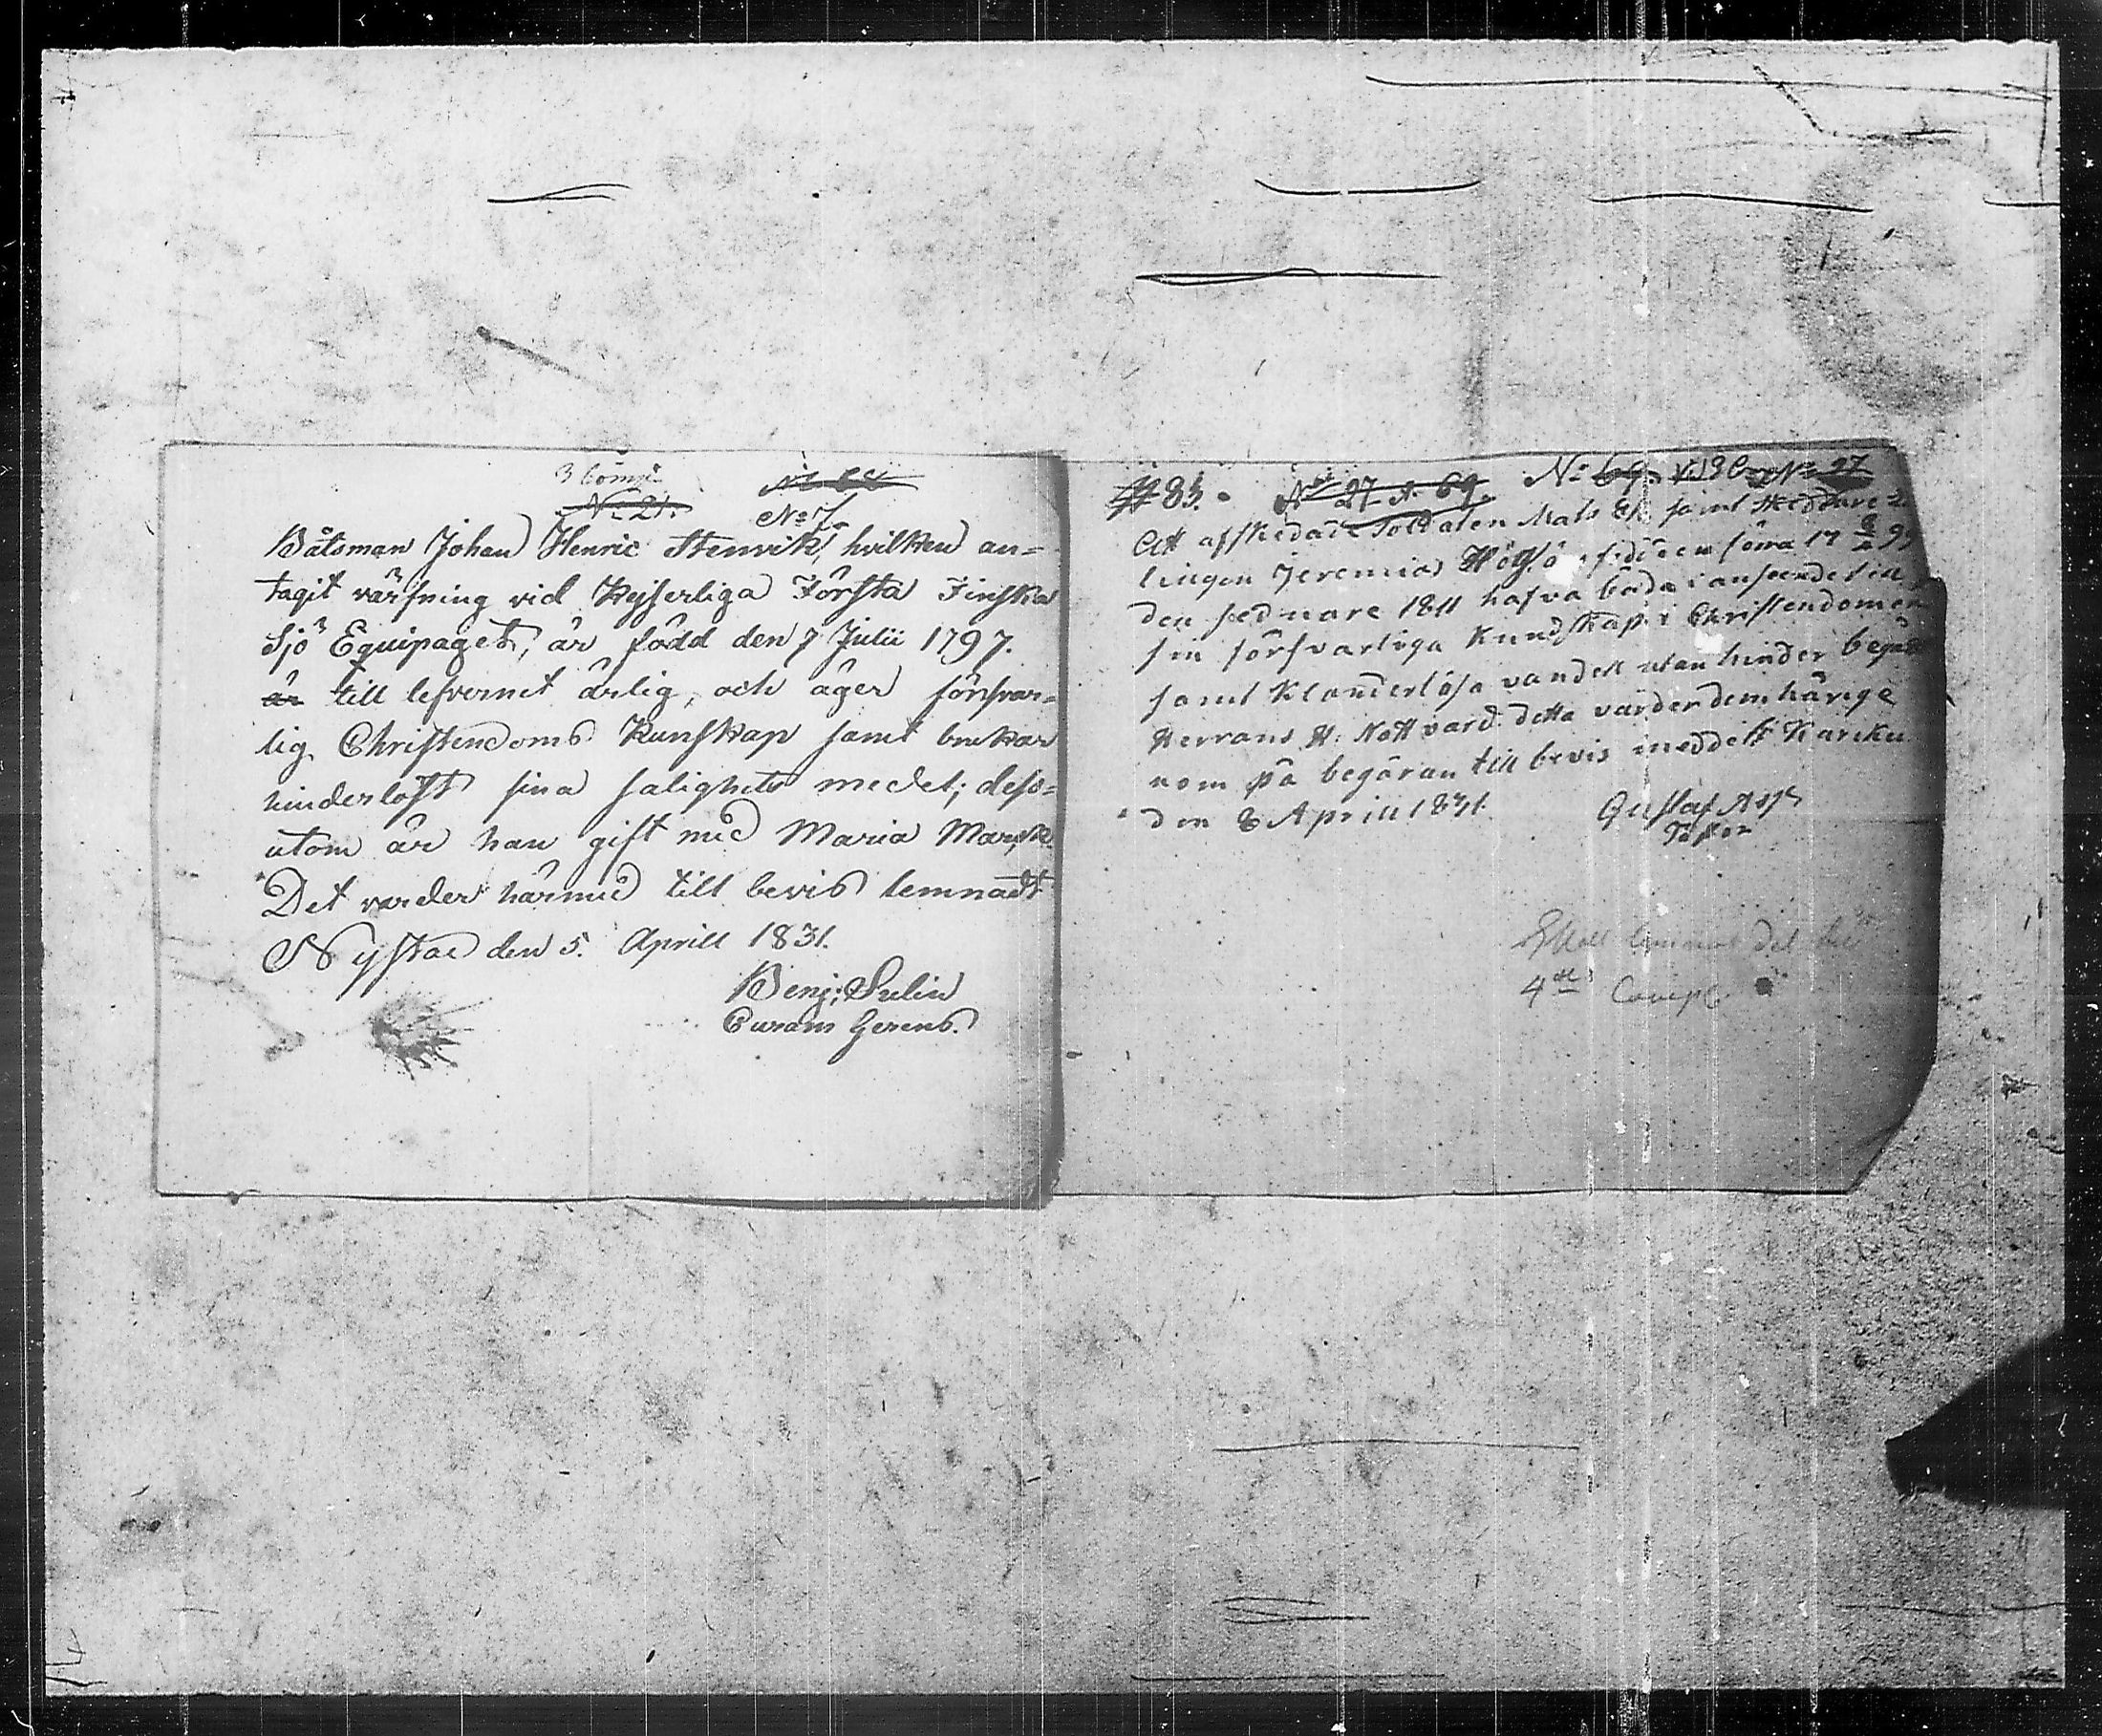 3 Comp:
N: 21.
No 7.
Båtsman Johan Henric Stenvik, hvilken an=
tagit värfning vid Kejserliga Första Finska
Sjö Equipaget, är född den 7 Julii 1797.
är till lefvernet ärlig, och äger försvar=
lig Christendoms Kunskap samt brukar
hinderlöst sina salighets medel; desso=
utom är han gift med Maria
Det varder härmed till bevis lemnadt
Nystad den 5. Aprill 1831.
Benj: Sulin
Curam Gerens.
# 83. N 27 A. 69. N: 69. N: 27
Att afskedade Soldaten Mats Ek samt
lingen Jeremias födde förra 17 95
den sednare 1811 hafva båda i anseende till
sin försvarliga Kundskap i Christendomen
samt Klanderlösa vandel utan hinder
Herrans H. Nattvard. detta varder dem härige
nom på begäran till bevis meddelt Karcku
den 8 Aprill 1831.
Gustaf
Pastor
4de Comp: